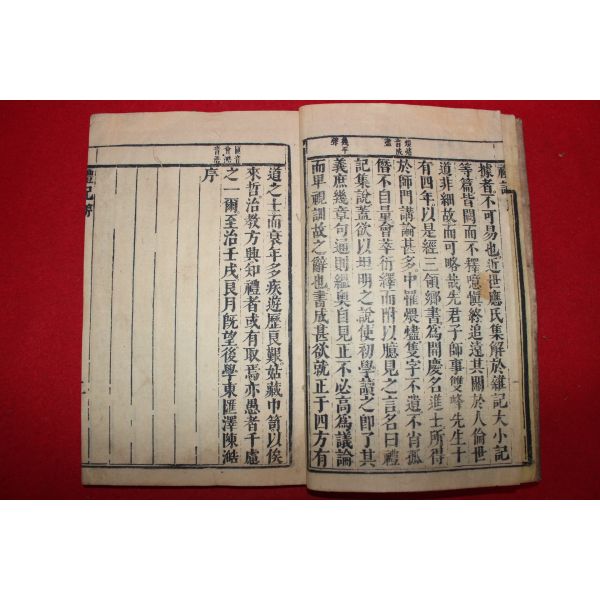 據者不可易也近世應氏集解於雜記大小記
等篇皆闕而不釋噫愼終追遠其關於人倫世
道非細故而可略哉先君子師事雙峰先生十
有四年以是經三領鄉書爲開慶名進士所得
於師門講論甚多中罹煨燼隻字不遺不肖孤
僭不自量會萃衍繹而附以臆見之言名曰禮
記集說蓋欲以坦明之說使初學讀之卽了其
義庶幾章句通則縕奧自見正不必高爲議論
而卑視訓故之辭也書成甚欲就正于四方有
幾平聲
道之士而衰年多疾遊歷良艱姑藏巾笥以俟
來哲治敎方興知禮者或有取焉亦愚者千慮
之一爾至治壬戌良月旣望後學東匯澤陳澔
序
禮記序